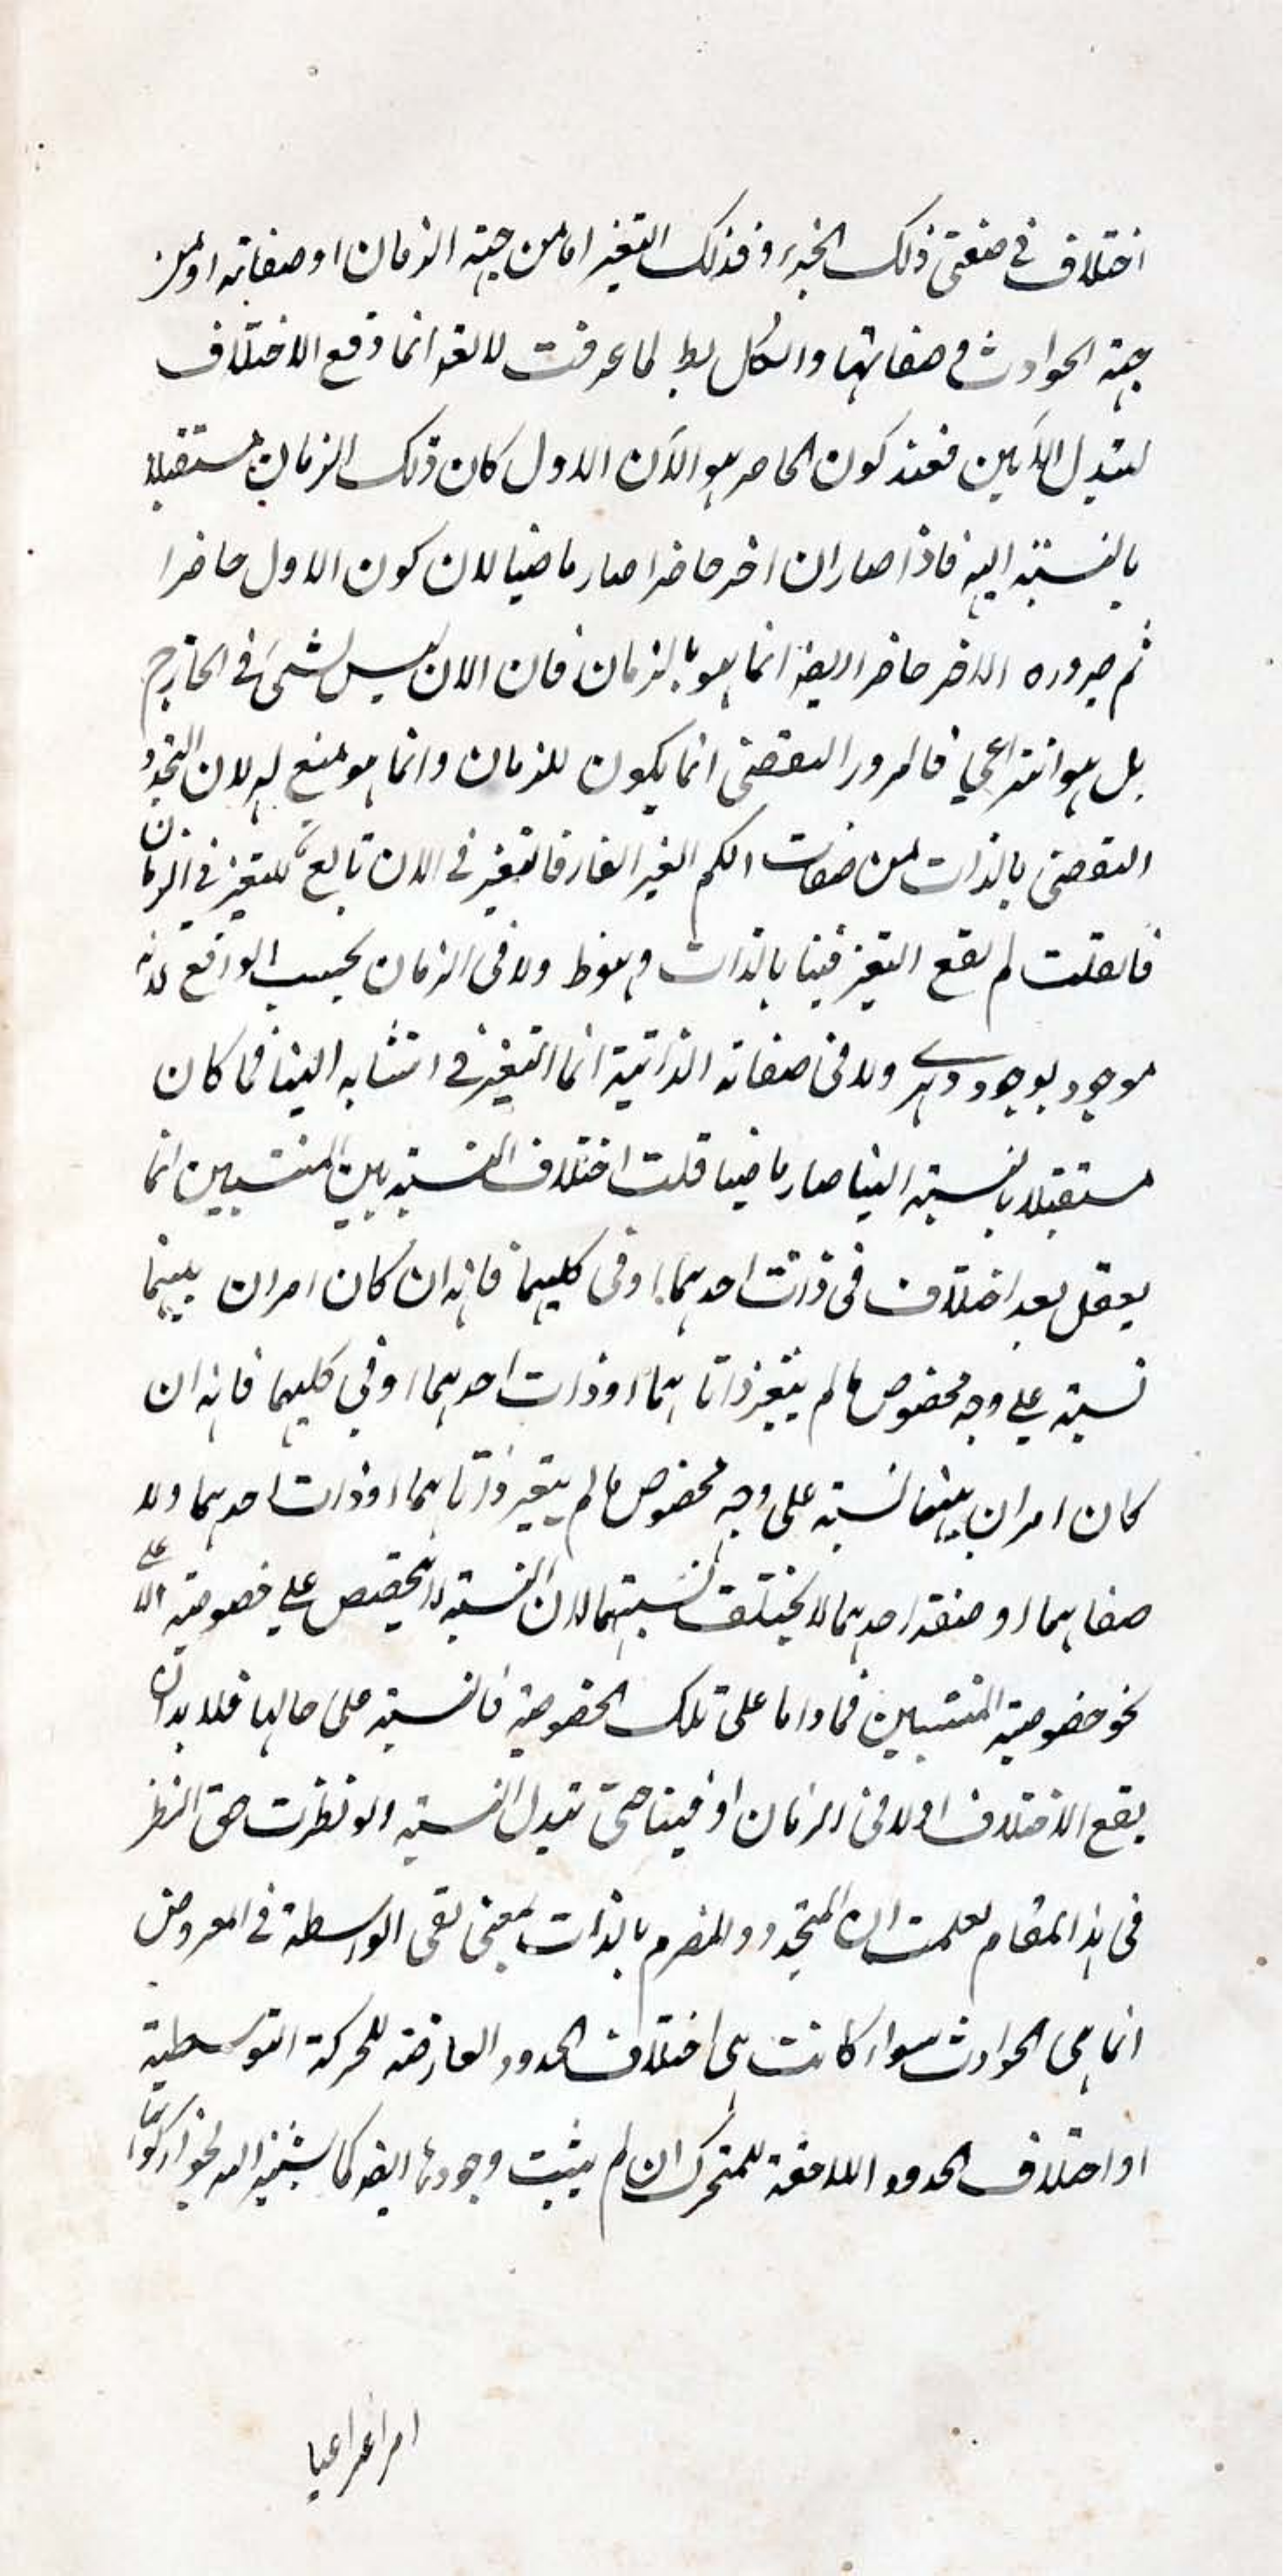 اختلاف في صفتي ذلك الجزء فذلك التغير اما من جهة الزمان او صفاته او من
جهة الحوادث و صفاتها والكل بط لما عرفت لا يقه انما وقع الاختلاف
لتبدل الآنين فعند كون الحاضر هو الآن الاول كان ذلك الزمان مستقبلا
بالنسبة اليه فاذا صار ان اخر حاضرا صار ماضيا لان كون الاول حاضرا
ثم صيروره الاخر حاضرا ايضه انما هو بالزمان فان الان ليس بشئ في الخارج
بل هو انتزاعي فالمرور التقضى انما يكون للزمان وانما هو منبع له لان التجدد
التقضى بالذات من صفات الكم الغير القار فالتغير في الان تابع للتغير في الزمان
فانقلت لم يقع التغير فينا بالذات وهو ظ ولا في الزمان بحسب الواقع لانه
موجود بوجود دهرے ولا في صفاته الذاتية انما التغير في انتسابه الينا فما كان
مستقبلا بالنسبة الينا صار ماضيا قلت اختلاف النسبة بين المنتسبين انما
يعقل بعد اختلاف في ذات احدهما او في كليهما فانه ان كان امران بينهما
نسبة علي وجه مخصوص ما لم يتغير ذاتاهما او ذات احدهما او في كليهما فانه ان
كان امران بينهما نسبة على وجه مخصوص ما لم يتغير ذاتاهما او ذات احدهما ولا
صفاهما او صفة احدهما لا يختلف نسبتهما لان النسبة لا تحصيص علي خصوصية الا على
نحو خصوصية المنتسبين فما داما على تلك الخصوصية فالنسبة على حالها فلا بد ان
يقع الاختلاف اولا في الزمان او فينا حتى تبدل النسبة ولو نظرت حق النظر
في هذا المقام لعلمت ان المتجدد و المنصرم بالذات بمعنى نفي الواسطة في العروض
انما هي الحوادث سواء كانت هي اختلاف الحدود العارضة للحركة التوسطية
او اختلاف الحدود اللاحقة للمتحرك ان لم يثبت وجودها ايضه كما لجواز كونها
امرا